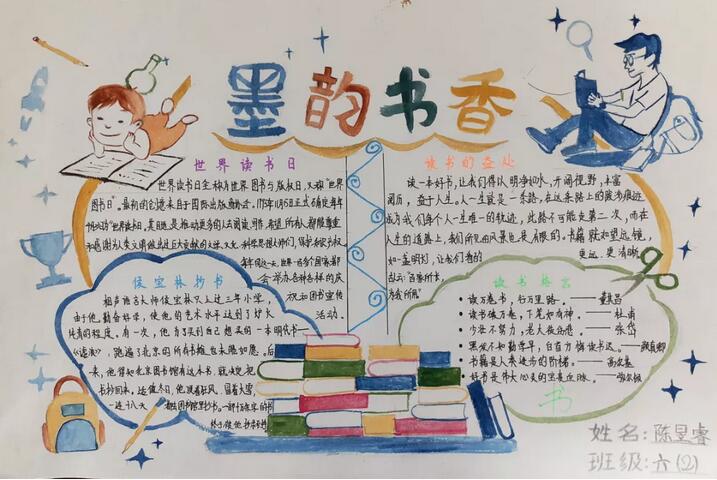 墨韵书香
世界读书日
世界读书日全称为世界图书与版权日,又称“世界
图书日”。最初的创意来自于国际出版商协会。1995年正式确定每年
4月23日为“世界读书日”,其目的是推动更多的人去阅读和写作,希望所有人都能尊重
和感谢为人类文明做出过巨大贡献的文学、文化、科学思想大师们,保护知识产权。
每年的这一天,世界一百多个国家都
会举办各种各样的庆
祝和图书宣传
活动。
读书的益处
读一本好书,让我们得以明净如水,开阔视野,丰富
阅历,益于人生。人一生就是一条路,在这条路上的跋涉痕迹
成为我们每个人一生唯一的轨迹,此路不可能走第二次,而在
人生的道路上,我们所见的风景也是有限的。书籍就如望远镜,
如一盏明灯,让我们看的
更远、更清晰。
侯宝林抄书
相声语言大师侯宝林只上过三年小学,
由于他勤奋好学,使他的艺术水平达到了炉火
纯青的程度。有一次,他为了买到自己想买的一本明代书
《谑浪》,跑遍了北京的所有书摊也未能如愿。后
来,他得知北京图书馆有这本书,就决定把
书抄回来。适值冬日,他顶着狂风,冒着大雪,
一连十八天
读书格言
读万卷书,行万里路。——董其昌
读书破万卷,下笔如有神。——杜甫
少壮不努力,老大徒伤悲。——
黑发不知勤学早,白首方悔读书迟。——颜真卿
书籍是人类进步的阶梯。——高尔基
好书是伟大心灵的宝贵血脉。——
书
姓名:陈昱睿
班级:六(2)